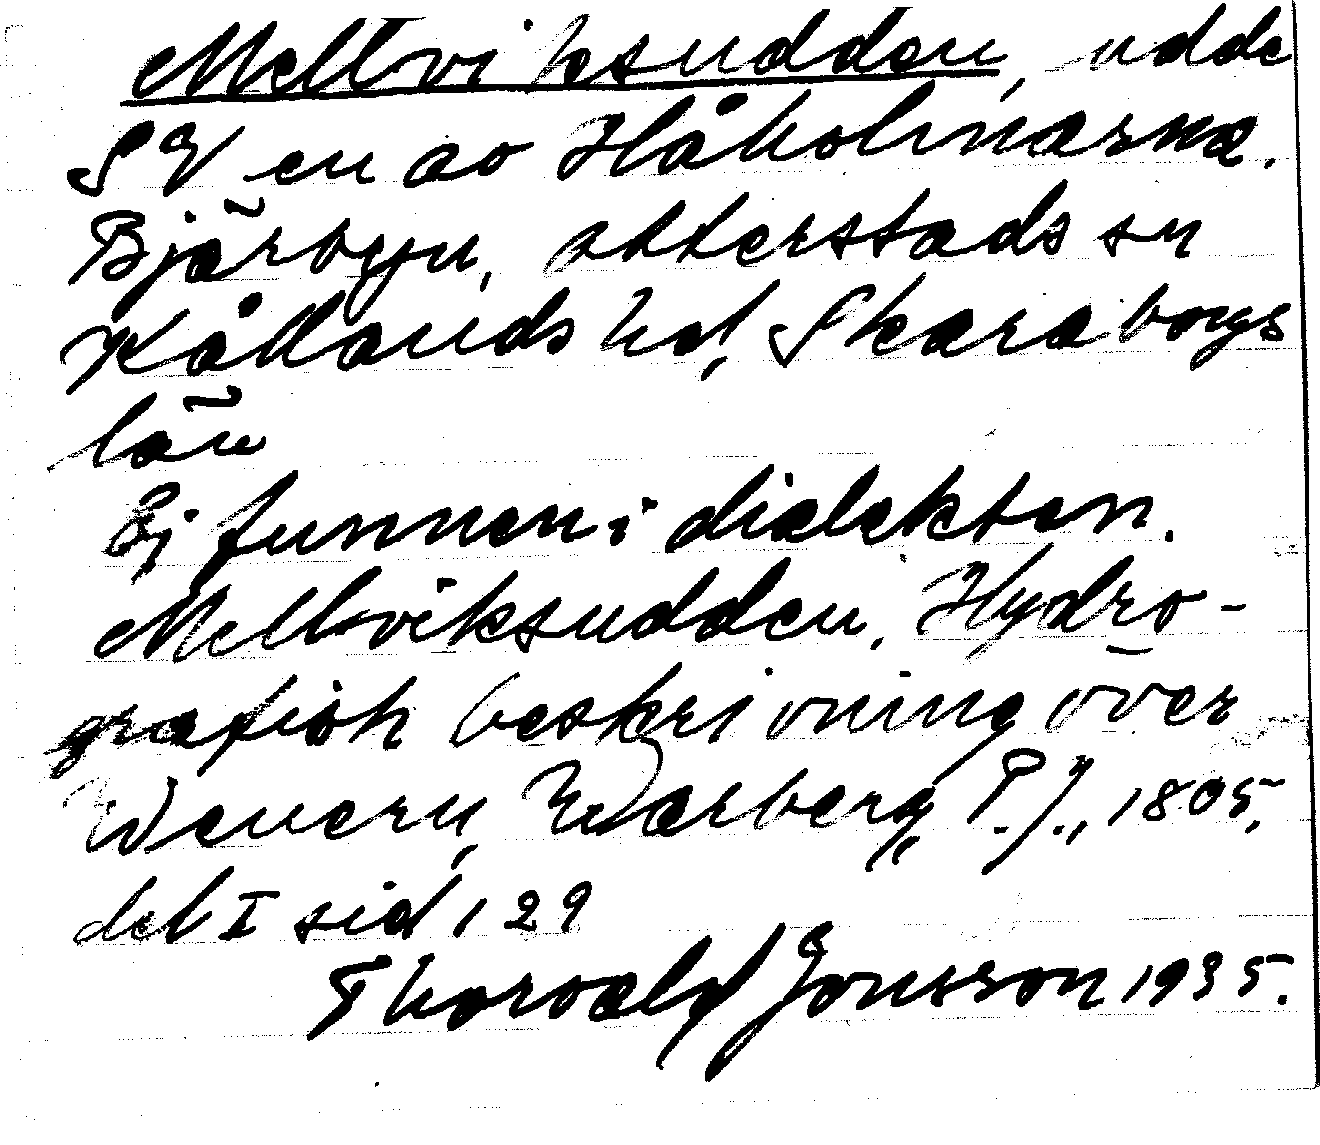 Mellviksudden, udde
SV en av Håholmarna.
Bjärbyn, otterstads sn
Kållands hd, Skaraborgs
län
Ej funnen i dialekten.
Mellviksudden, Hydro-
grafisk beskrivning över
Wenern, Warberg, P.J., 1805,
del I sid 129
Thorvald Jonsson 1935.